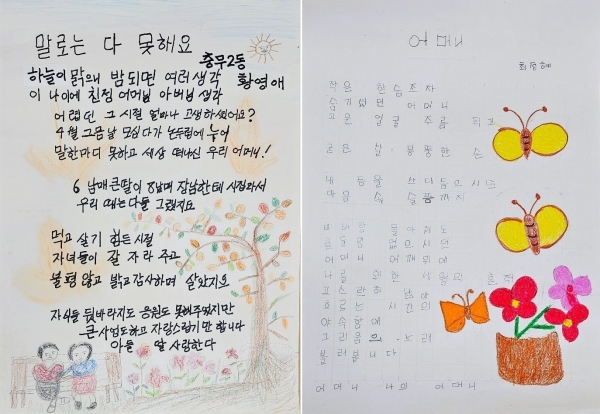 말로는 다 못해요
충무2동
황영애
하늘이 맑으니 밤되면 여러생각
이 나이에 친정 어머님 아버님 생각
어렵던 그 시절 얼마나 고생하셨어요?
4월 그믐날 모심다가 논두렁에 누어
말한마디 못하고 세상 떠나신 우리 어머니!
6남매 큰딸이 8남매 장남한테 시집와서
우리 때는 다들 그랬지요
먹고 살기 힘든 시절
자녀들이 잘 자라 주고
불평않고 밝고 감사하며 살았지요
자식들 뒷바라지도 응원도 못해주었지만
큰 사업도하고 자랑스럽기만 합니다
아들 딸 사랑한다
어머니
최정혜
작은 한숨조차
숨기셨던 어머니
고운 얼굴 주름 지고
굳은 살 뭉뚱한 손
내 등을 쓰다듬으시면
마음 속 슬픔까지
어머니
나를 위한
흐르는 시간이
야속함에
그리움의 노래
불러봅니다
어머니 나의 어머니